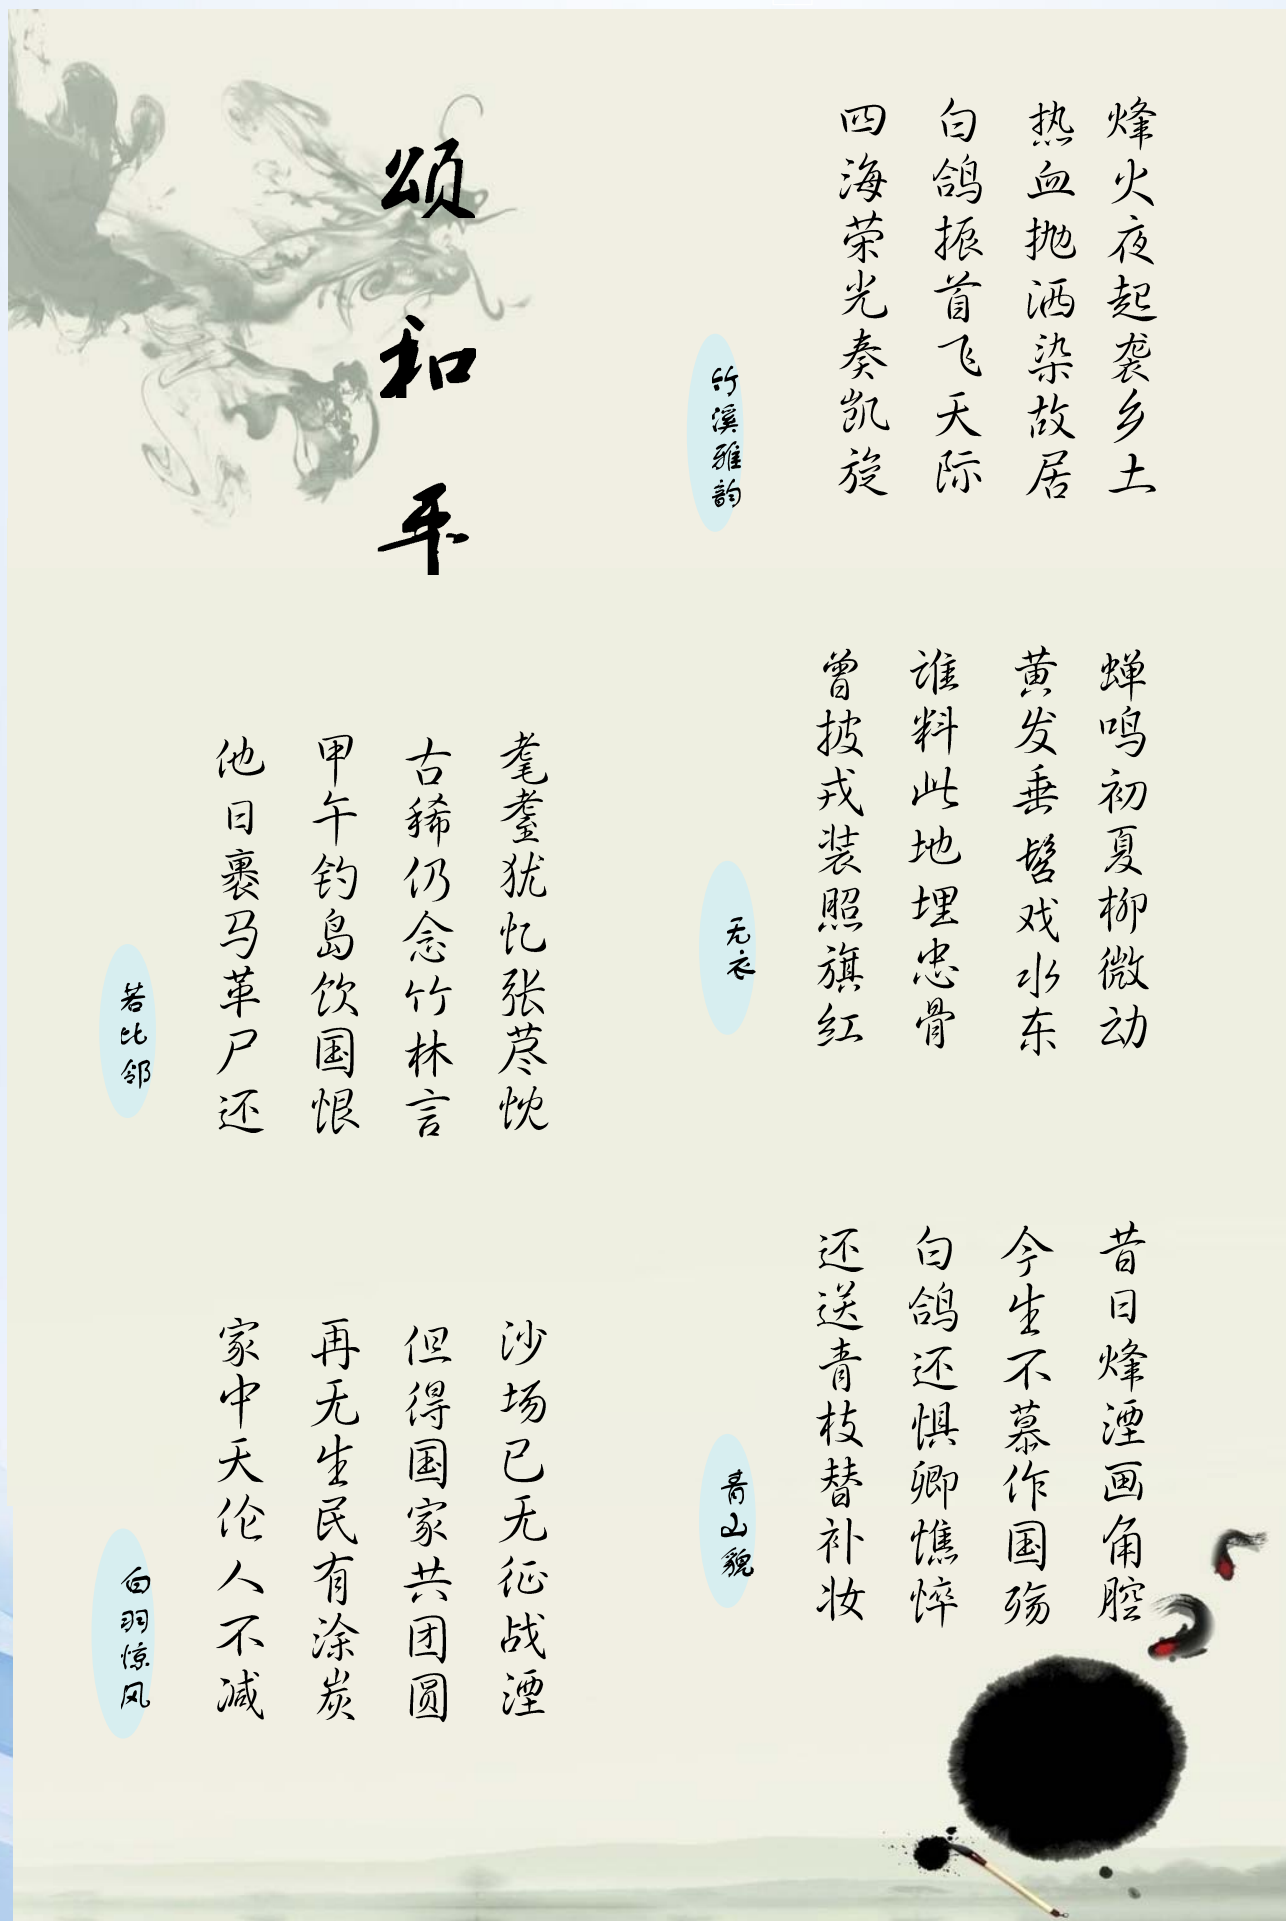 颂和平
烽火夜起袭乡土
热血抛洒染故居
白鸽振首飞天际
四海荣光奏凯旋
竹溪雅韵
蝉鸣初夏柳微动
黄发垂髫戏水东
谁料此地埋忠骨
曾披戎装照旗红
无衣
昔日烽湮画角腔
今生不慕作国殇
白鸽还惧卿憔悴
还送青枝替补妆
青山貌
耄耋犹忆张荩忱
古稀仍念竹林言
甲午钓岛饮国恨
他日裹马革尸还
若比邻
沙场已无征战湮
但得国家共团圆
再无生民有涂炭
家中天伦人不减
白羽惊风